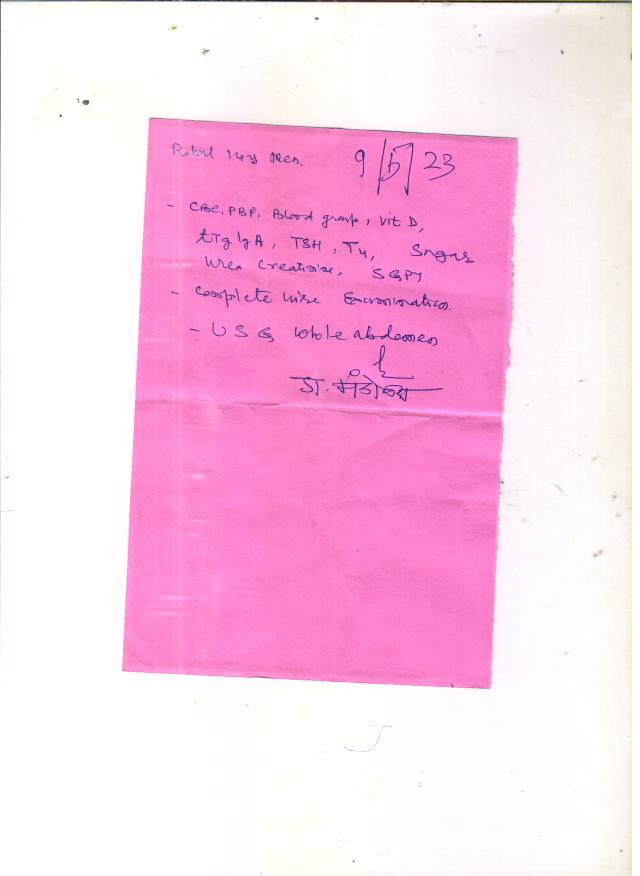 9/5/23
- CBC, PBF, Blood group, Vit D,
tTg IgA, TSH, T4, Sugar
Urea Creatinine, SGPT
- Complete Urine Examination
- USG whole abdomen
डा.